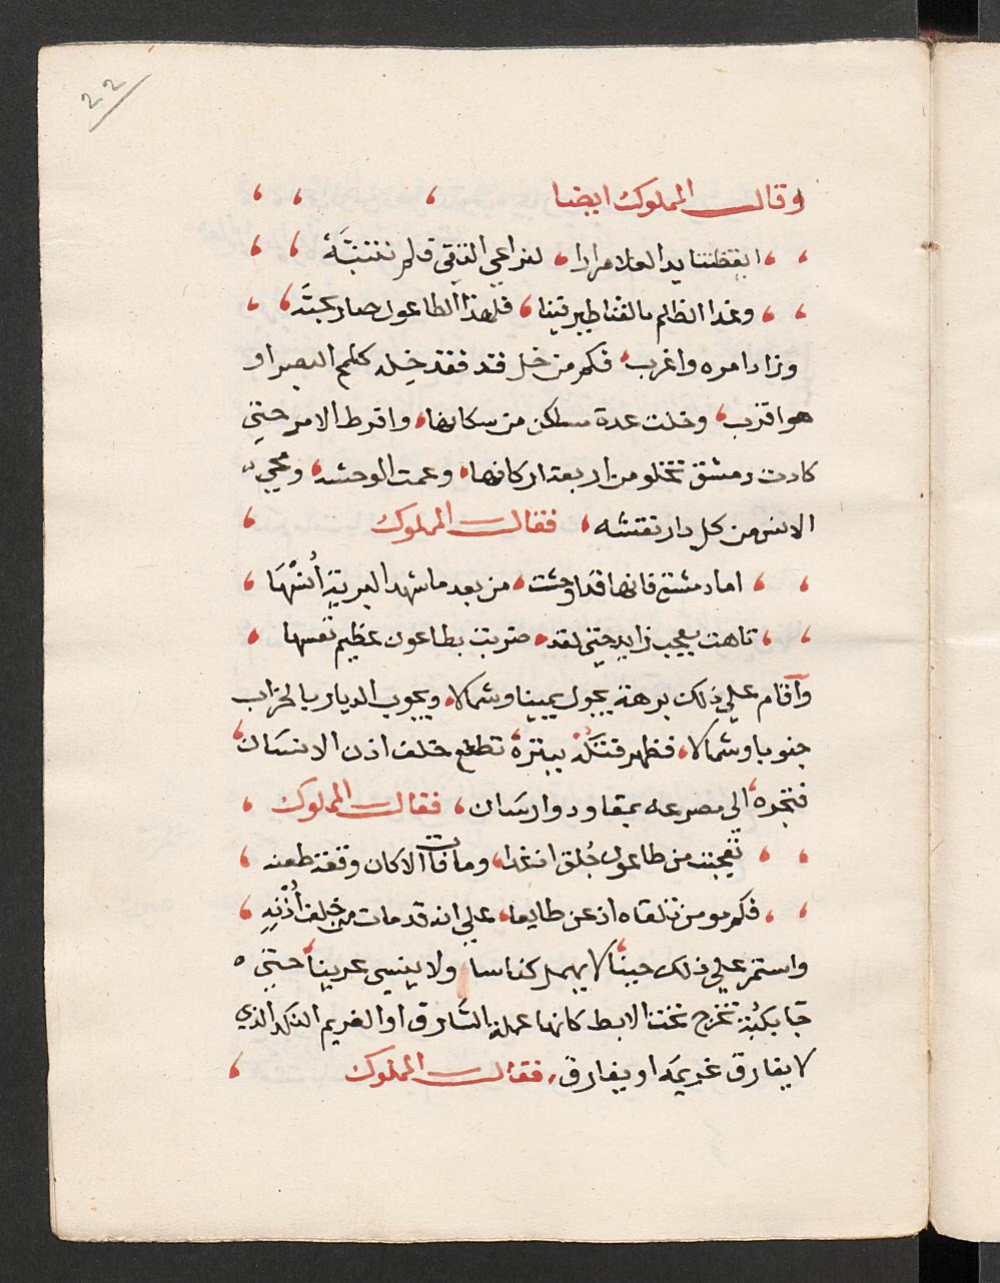 22
وقال المملوك ايضا
ايقظتنا يد العلا مرارا، لنراعي التقى فلم ننتبه
وغدا الظالم بيننا، فلهذا الطاعون صار بحبة
وزاد امره واغرب، فكم من خل قد فقد خله كلمح البصر او
هو اقرب، وخلت عدة مساكن من سكانها، وافرط الامر حتي
كادت دمشق تخلو من اربعة اركانها، وعمت الوحشه، ومحي
الانس من كل دار نقشه، فقال المملوك
اما دمشق فانها قد اوحشت، من بعد ما شهد البرية أنسها
تاهت بعجب زايد حتي لقد، ضربت بطاعون عظيم نفسها
وأقام علي ذلك برهة يجول يمينا وشمالا، ويجوب الديار بالخراب
جنوبا وشمالا، فظهر ببثرة تطلع خلف اذن الانسان
فتجره الى مصرعه بمقاود وارسان، فقال المملوك
تعجبت من طاعون جلق اذ غدا، وما فات الاكان وقفة طعنه
فكم مومن تلقاه اذعن طايعا، علي انه قد مات من خلف أذنه
واستمر علي ذلك حينا لا يهمل كناسا ولا ينسى عرينا، حتي
جا بكبة تخرج تحت الابط كانها عملة السارق او الغريم النكد الذي
لا يفارق غريمه او يفارق، فقال المملوك